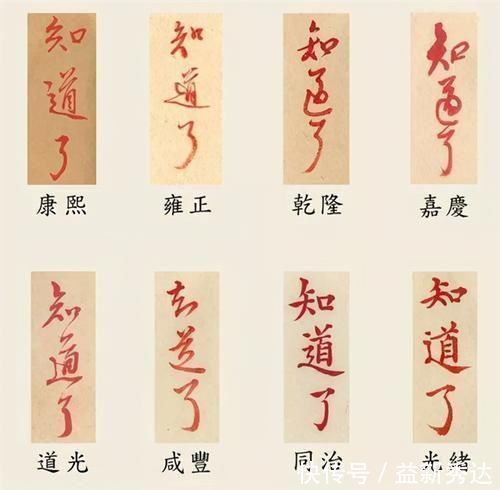 知道了
知道了
知道了
知道了
康熙
雍正
乾隆
嘉慶
知道了
知道了
知道了
知道了
道光
咸豐
同治
光緒
快传号／益新秀达